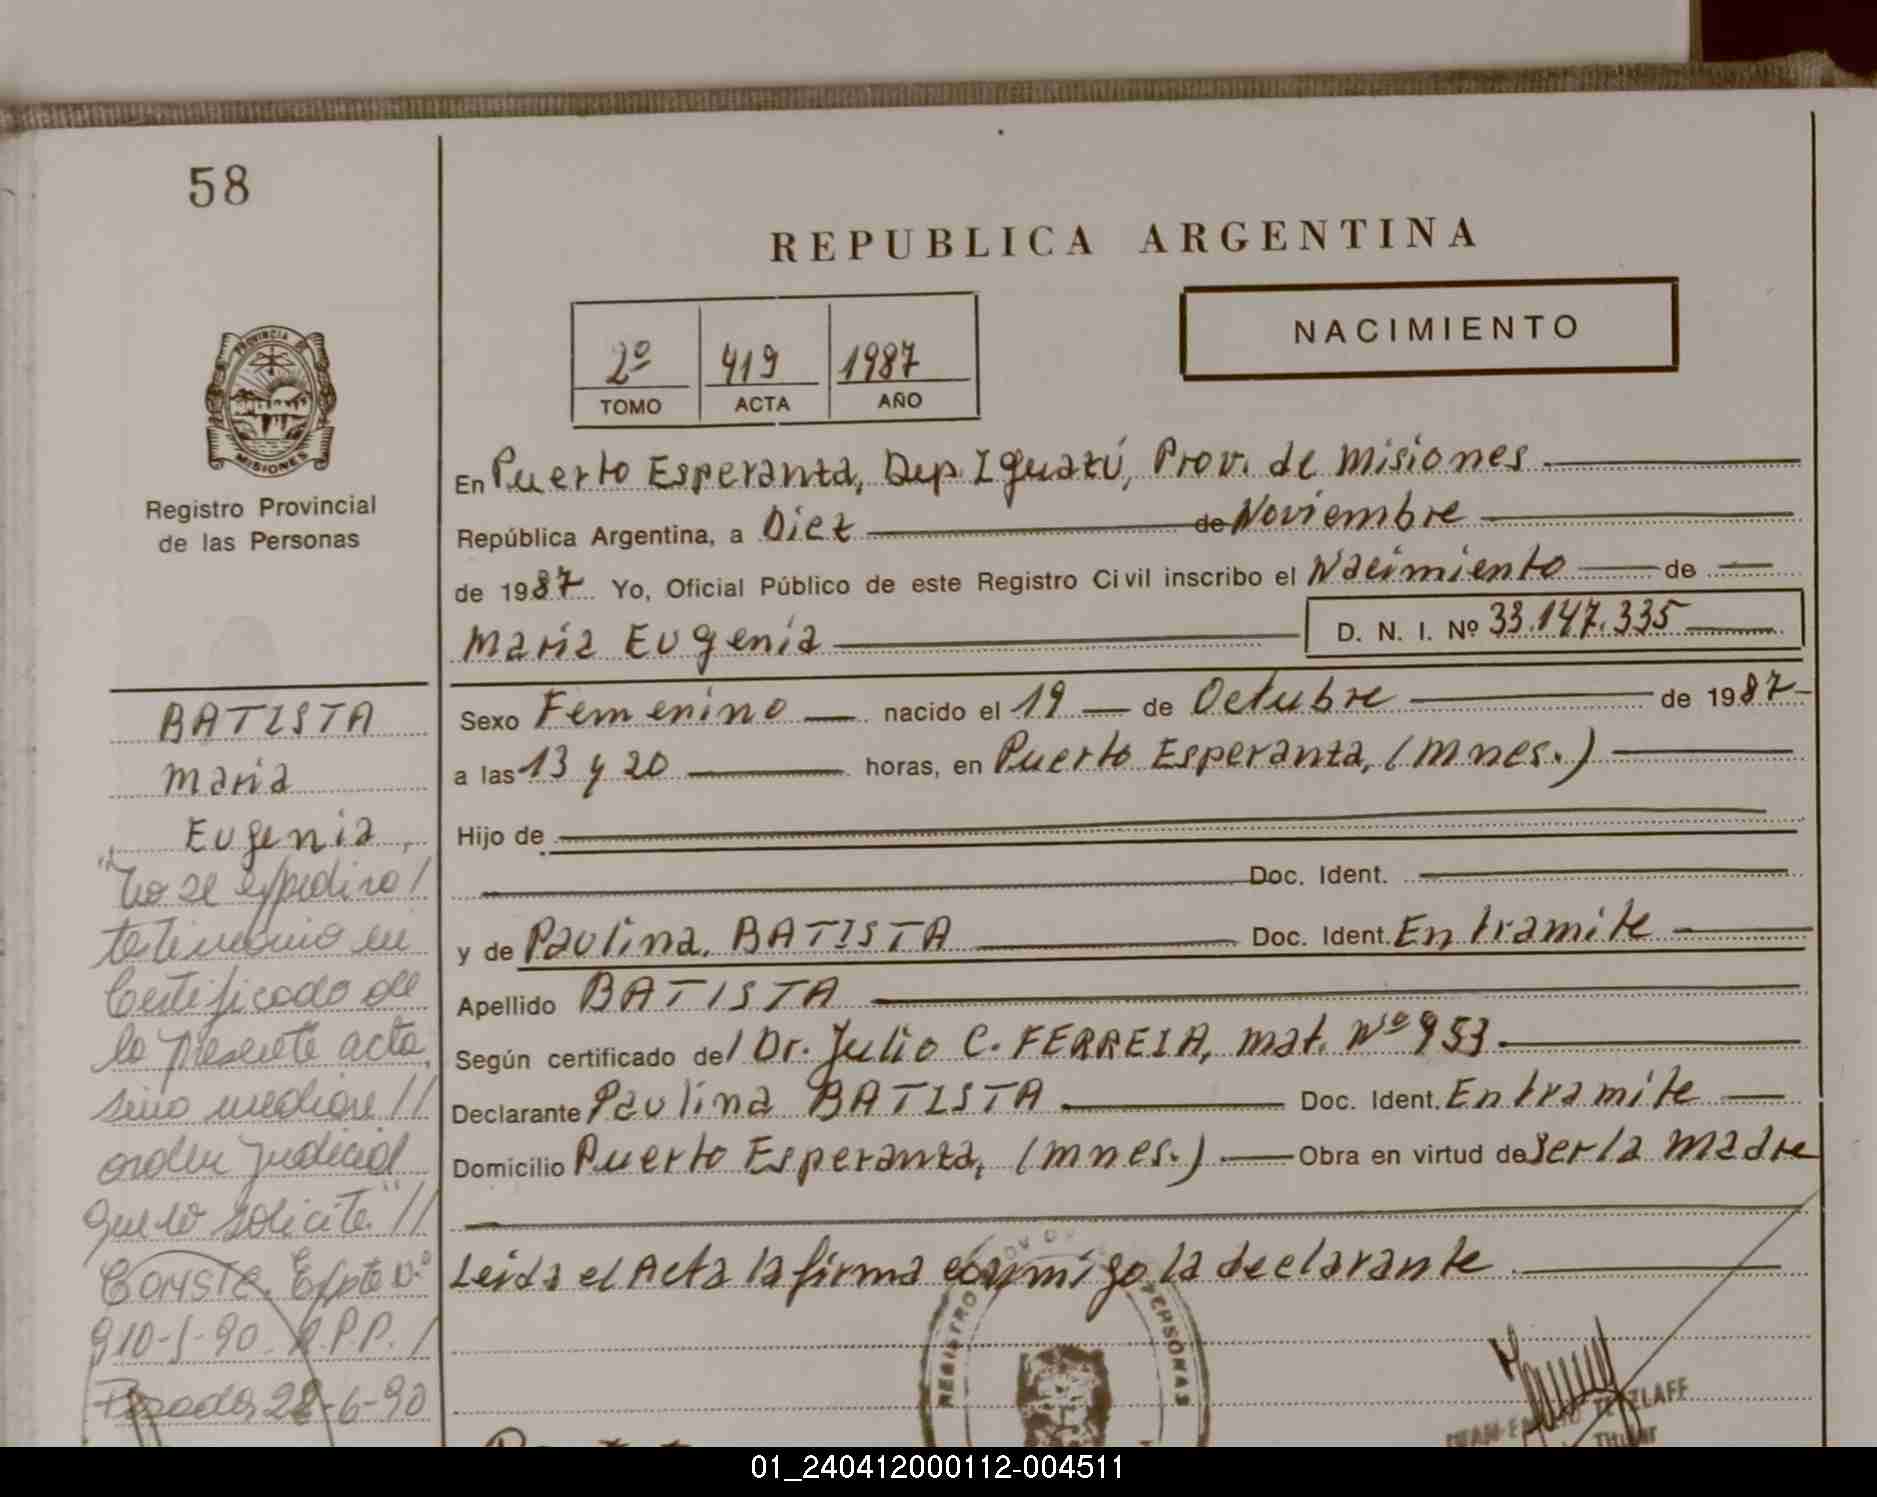 58
REPUBLICA ARGENTINA
NACIMIENTO
2º 419 1987
TOMO ACTA AÑO
PROVINCIA DE
MISIONES
Registro Provincial
de las Personas
En Puerto Esperanza, Dep. Iguazú, Prov. de Misiones
República Argentina, a Diez de Noviembre
de 1987 Yo, Oficial Público de este Registro Civil inscribo el Nacimiento de
Maria Eugenia D. N. I. Nº 33.147.335
BATISTA
Maria
Eugenia
Sexo Femenino nacido el 19 de Octubre de 1987
a las 13 y 20 horas, en Puerto Esperanza, (Mnes.)
Hijo de
Doc. Ident.
y de Paulina BATISTA Doc. Ident. En tramite
Apellido BATISTA
Según certificado del Dr. Julio C. FERREIA, mat. Nº 953
Declarante Paulina BATISTA Doc. Ident. En tramite
Domicilio Puerto Esperanza, (Mnes.) Obra en virtud de ser la madre
Leida el Acta la firma conmigo la declarante
"No se expedira/
testimonio
Certificado de
la presente acta
sino mediare //
orden judicial
que lo solicite" //
CONSTE. Expte nº
910-
R.P.P. /
Posadas, 28-6-90
REGISTRO PERSONAS
01_240412000112-004511